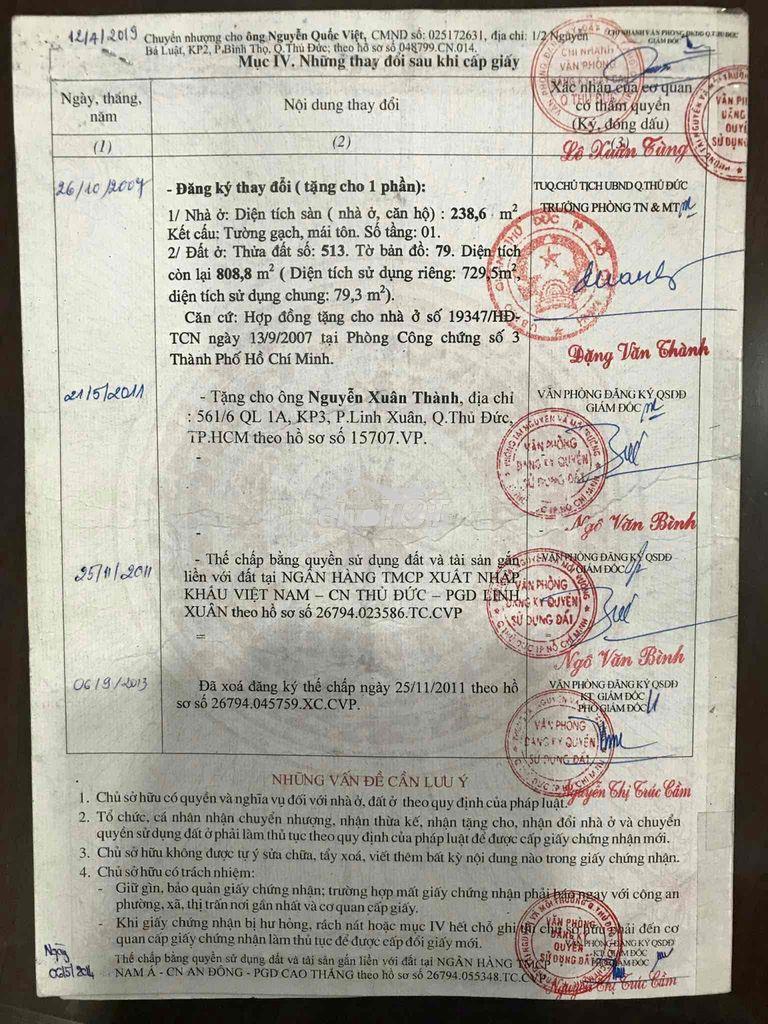 12/4/2019
Chuyển nhượng cho ông Nguyễn Quốc Việt, CMND số: 025172631, địa chỉ: 1/2 Nguyễn
Bá Luật, KP2, P.Bình Thọ, Q.Thủ Đức; theo hồ sơ số 048799.CN.014.
CHI NHÁNH VĂN PHÒNG ĐKĐĐ Q.THỦ ĐỨC
GIÁM ĐỐC
Lê Xuân Tùng
Mục IV. Những thay đổi sau khi cấp giấy
Ngày, tháng,
năm
Nội dung thay đổi
Xác nhận của cơ quan
có thẩm quyền
(Ký, đóng dấu)
(1)
(2)
(3)
26/10/2007
- Đăng ký thay đổi ( tặng cho 1 phần):
1/ Nhà ở: Diện tích sàn ( nhà ở, căn hộ) : 238,6 m²
Kết cấu: Tường gạch, mái tôn. Số tầng: 01.
2/ Đất ở: Thửa đất số: 513. Tờ bản đồ: 79. Diện tích
còn lại 808,8 m² ( Diện tích sử dụng riêng: 729,5m²,
diện tích sử dụng chung: 79,3 m²).
Căn cứ: Hợp đồng tặng cho nhà ở số 19347/HĐ-
TCN ngày 13/9/2007 tại Phòng Công chứng số 3
Thành Phố Hồ Chí Minh.
TUQ.CHỦ TỊCH UBND Q.THỦ ĐỨC
TRƯỞNG PHÒNG TN & MT
Đặng Văn Thành
21/5/2011
- Tặng cho ông Nguyễn Xuân Thành, địa chỉ
: 561/6 QL 1A, KP3, P.Linh Xuân, Q.Thủ Đức,
TP.HCM theo hồ sơ số 15707.VP.
VĂN PHÒNG ĐĂNG KÝ QSDĐ
GIÁM ĐỐC
PHÒNG TÀI NGUYÊN VÀ MÔI TRƯỜNG
VĂN PHÒNG
ĐĂNG KÝ QUYỀN
SỬ DỤNG ĐẤT
Ngô Văn Bình
25/11/2011
- Thế chấp bằng quyền sử dụng đất và tài sản gắn
liền với đất tại NGÂN HÀNG TMCP XUẤT NHẬP
KHẨU VIỆT NAM – CN THỦ ĐỨC – PGD LINH
XUÂN theo hồ sơ số 26794.023586.TC.CVP
=
VĂN PHÒNG ĐĂNG KÝ QSDĐ
GIÁM ĐỐC
VĂN PHÒNG
ĐĂNG KÝ QUYỀN
SỬ DỤNG ĐẤT
Ngô Văn Bình
06/9/2013
Đã xoá đăng ký thế chấp ngày 25/11/2011 theo hồ
sơ số 26794.045759.XC.CVP.
VĂN PHÒNG ĐĂNG KÝ QSDĐ
KT. GIÁM ĐỐC
PHÓ GIÁM ĐỐC
VĂN PHÒNG
ĐĂNG KÝ QUYỀN
SỬ DỤNG ĐẤT
Nguyễn Thị Trúc Cầm
NHỮNG VẤN ĐỀ CẦN LƯU Ý
1. Chủ sở hữu có quyền và nghĩa vụ đối với nhà ở, đất ở theo quy định của pháp luật.
2. Tổ chức, cá nhân nhận chuyển nhượng, nhận thừa kế, nhận tặng cho, nhận đổi nhà ở và chuyển
quyền sử dụng đất ở phải làm thủ tục theo quy định của pháp luật để được cấp giấy chứng nhận mới.
3. Chủ sở hữu không được tự ý sửa chữa, tẩy xoá, viết thêm bất kỳ nội dung nào trong giấy chứng nhận.
4. Chủ sở hữu có trách nhiệm:
- Giữ gìn, bảo quản giấy chứng nhận; trường hợp mất giấy chứng nhận phải báo ngay với công an
phường, xã, thị trấn nơi gần nhất và cơ quan cấp giấy.
- Khi giấy chứng nhận bị hư hỏng, rách nát hoặc mục IV hết chỗ ghi thì chủ sở hữu phải đến cơ
quan cấp giấy chứng nhận làm thủ tục để được cấp đổi giấy mới.
Ngày
06/5/2014
Thế chấp bằng quyền sử dụng đất và tài sản gắn liền với đất tại NGÂN HÀNG TMCP
NAM Á - CN AN ĐÔNG - PGD CAO THẮNG theo hồ sơ số 26794.055348.TC.CVP
VĂN PHÒNG ĐĂNG KÝ QSDĐ
KT. GIÁM ĐỐC
Nguyễn Thị Trúc Cầm